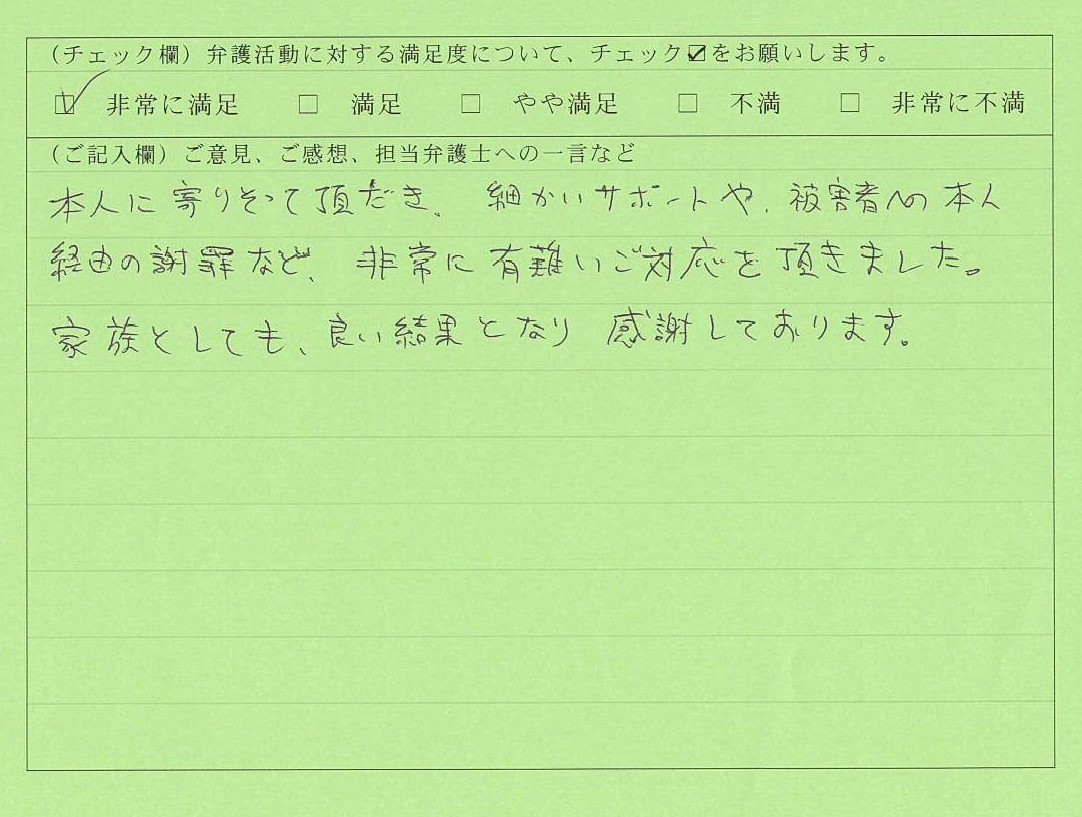 （チェック欄）弁護活動に対する満足度について、チェック☑をお願いします。
☑ 非常に満足 □ 満足 □ やや満足 □ 不満 □ 非常に不満
（ご記入欄）ご意見、ご感想、担当弁護士への一言など
本人に寄りそって頂だき、細かいサポートや、被害者への本人
経由の謝罪など、非常に有難いご対応を頂きました。
家族としても、良い結果となり感謝しております。